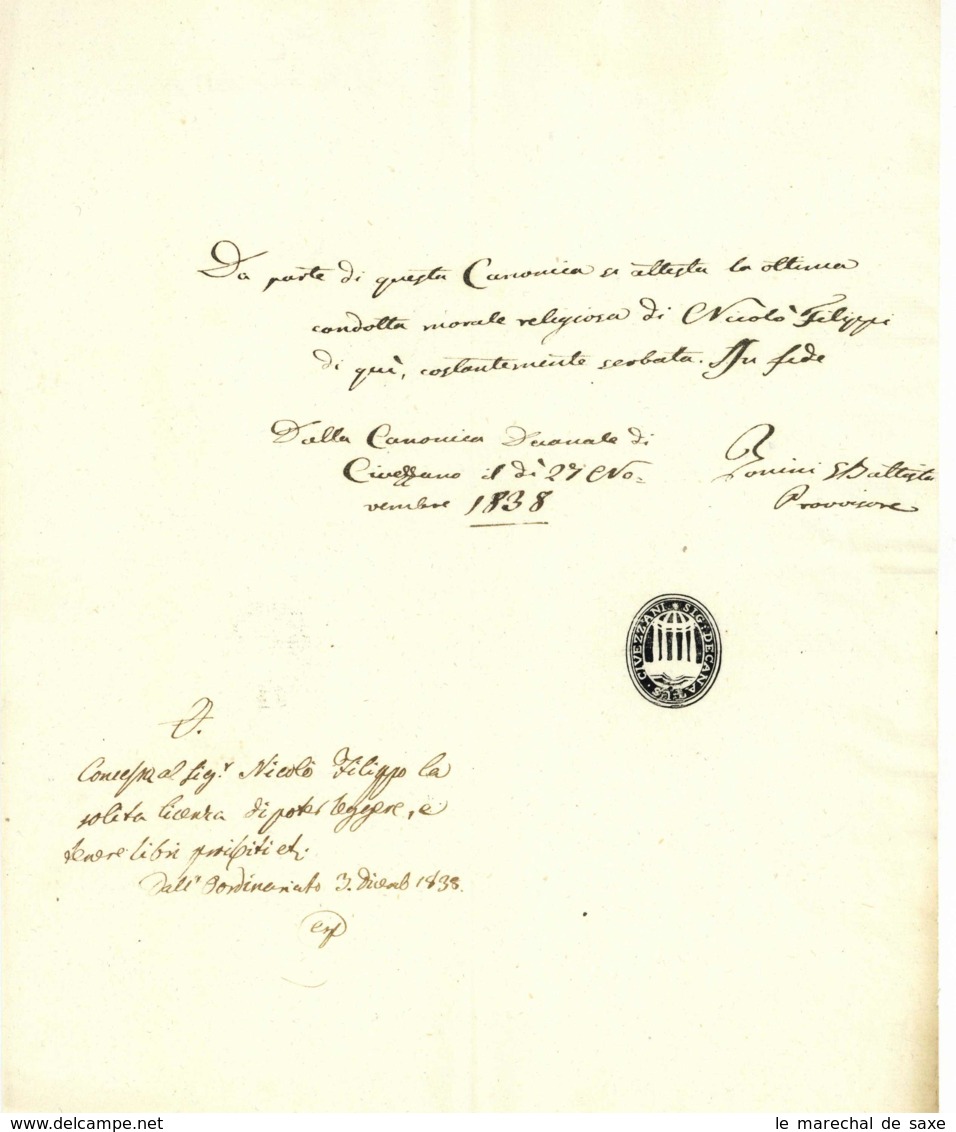 Da parte di questa Canonica si attesta la ottima
condotta morale religiosa di Nicolò Filippi
di quì, costantemente serbata. In fede
Dalla Canonica Decanale di
Civezzano il dì 27 No=
vembre 1838
Bonini GBattista
Provvisore
SIG: DECANATUS CIVEZZANI
Concessa al Sigr. Nicolò Filippo la
solita licenza di poter leggere, e
tenere libri proibiti etc.
Dall' Ordinariato 3. Dicemb 1838.
le marechal de saxe
www.delcampe.net